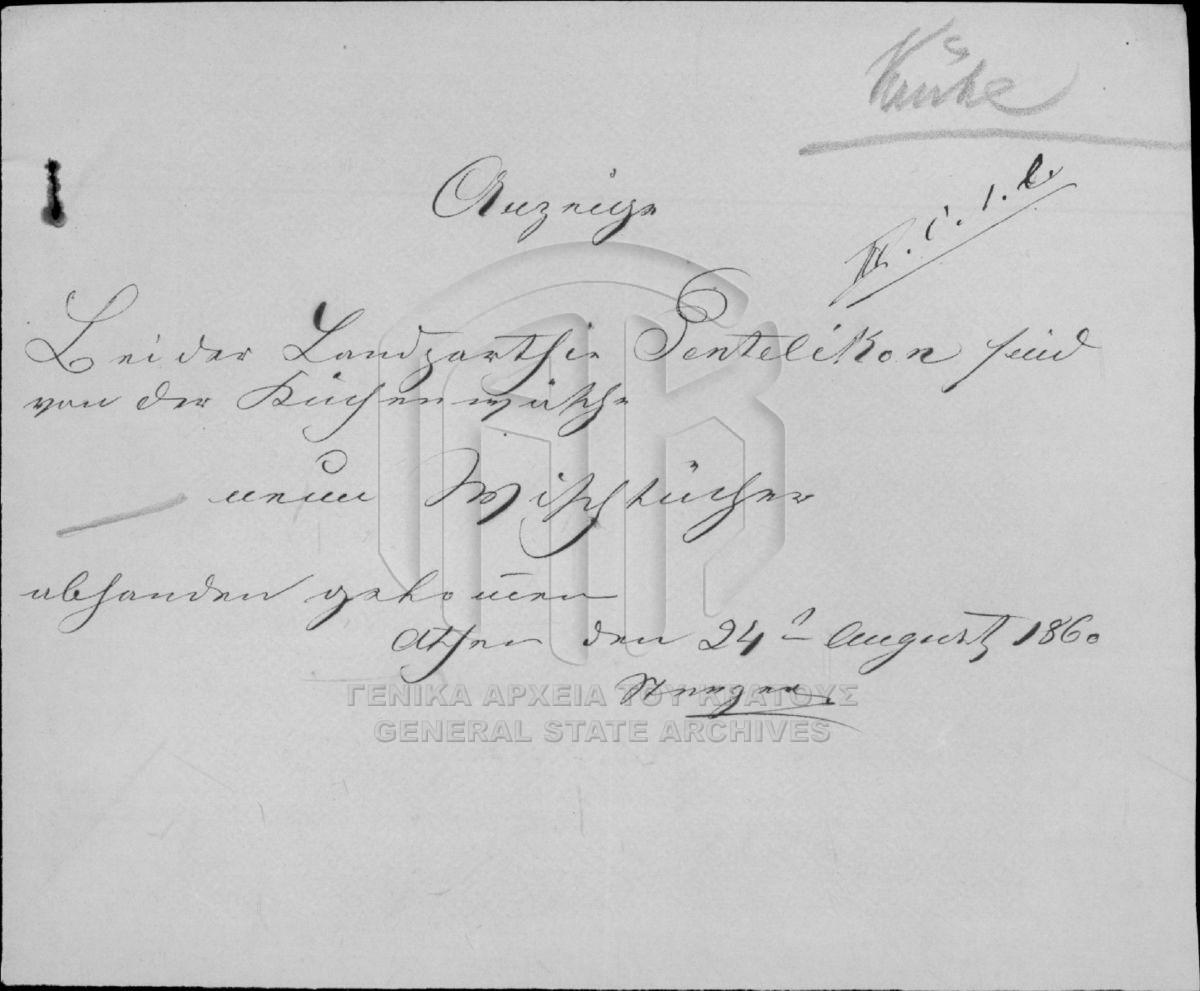 Küche
Anzeige
II. C. 1. b.
Bei der Landparthie Pentelikon sind
von der Küchenwäsche
neun Wischtücher
abhanden gekommen
Athen den 24t August 1860
ΓΕΝΙΚΑ ΑΡΧΕΙΑ ΤΟΥ ΚΡΑΤΟΥΣ
GENERAL STATE ARCHIVES